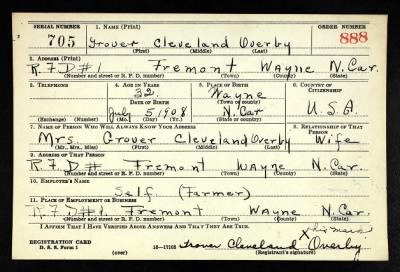 SERIAL NUMBER 1. NAME (Print) ORDER NUMBER
705 Grover Cleveland Overby 888
(First) (Middle) (Last)
2. ADDRESS (Print)
R.F.D #1 Fremont Wayne N. Car.
(Number and street or R. F. D. number) (Town) (County) (State)
3. TELEPHONE 4. AGE IN YEARS 5. PLACE OF BIRTH 6. COUNTRY OF CITIZENSHIP
32 Wayne
DATE OF BIRTH (Town or county)
July 5 1908 N. Car U.S.A.
(Exchange) (Number) (Mo.) (Day) (Yr.) (State or country)
7. NAME OF PERSON WHO WILL ALWAYS KNOW YOUR ADDRESS 8. RELATIONSHIP OF THAT PERSON
Mrs. Grover Cleveland Overby Wife
(Mr., Mrs., Miss) (First) (Middle) (Last)
9. ADDRESS OF THAT PERSON
R.F.D # Fremont Wayne N. Car.
(Number and street or R. F. D. number) (Town) (County) (State)
10. EMPLOYER'S NAME
Self (Farmer)
11. PLACE OF EMPLOYMENT OR BUSINESS
R.F.D #1. Fremont Wayne N. Car.
(Number and street or R. F. D. number) (Town) (County) (State)
I AFFIRM THAT I HAVE VERIFIED ABOVE ANSWERS AND THAT THEY ARE TRUE.
X his mark
REGISTRATION CARD
D. S. S. Form 1 16—17105 Grover Cleveland Overby
(over) (Registrant's signature)